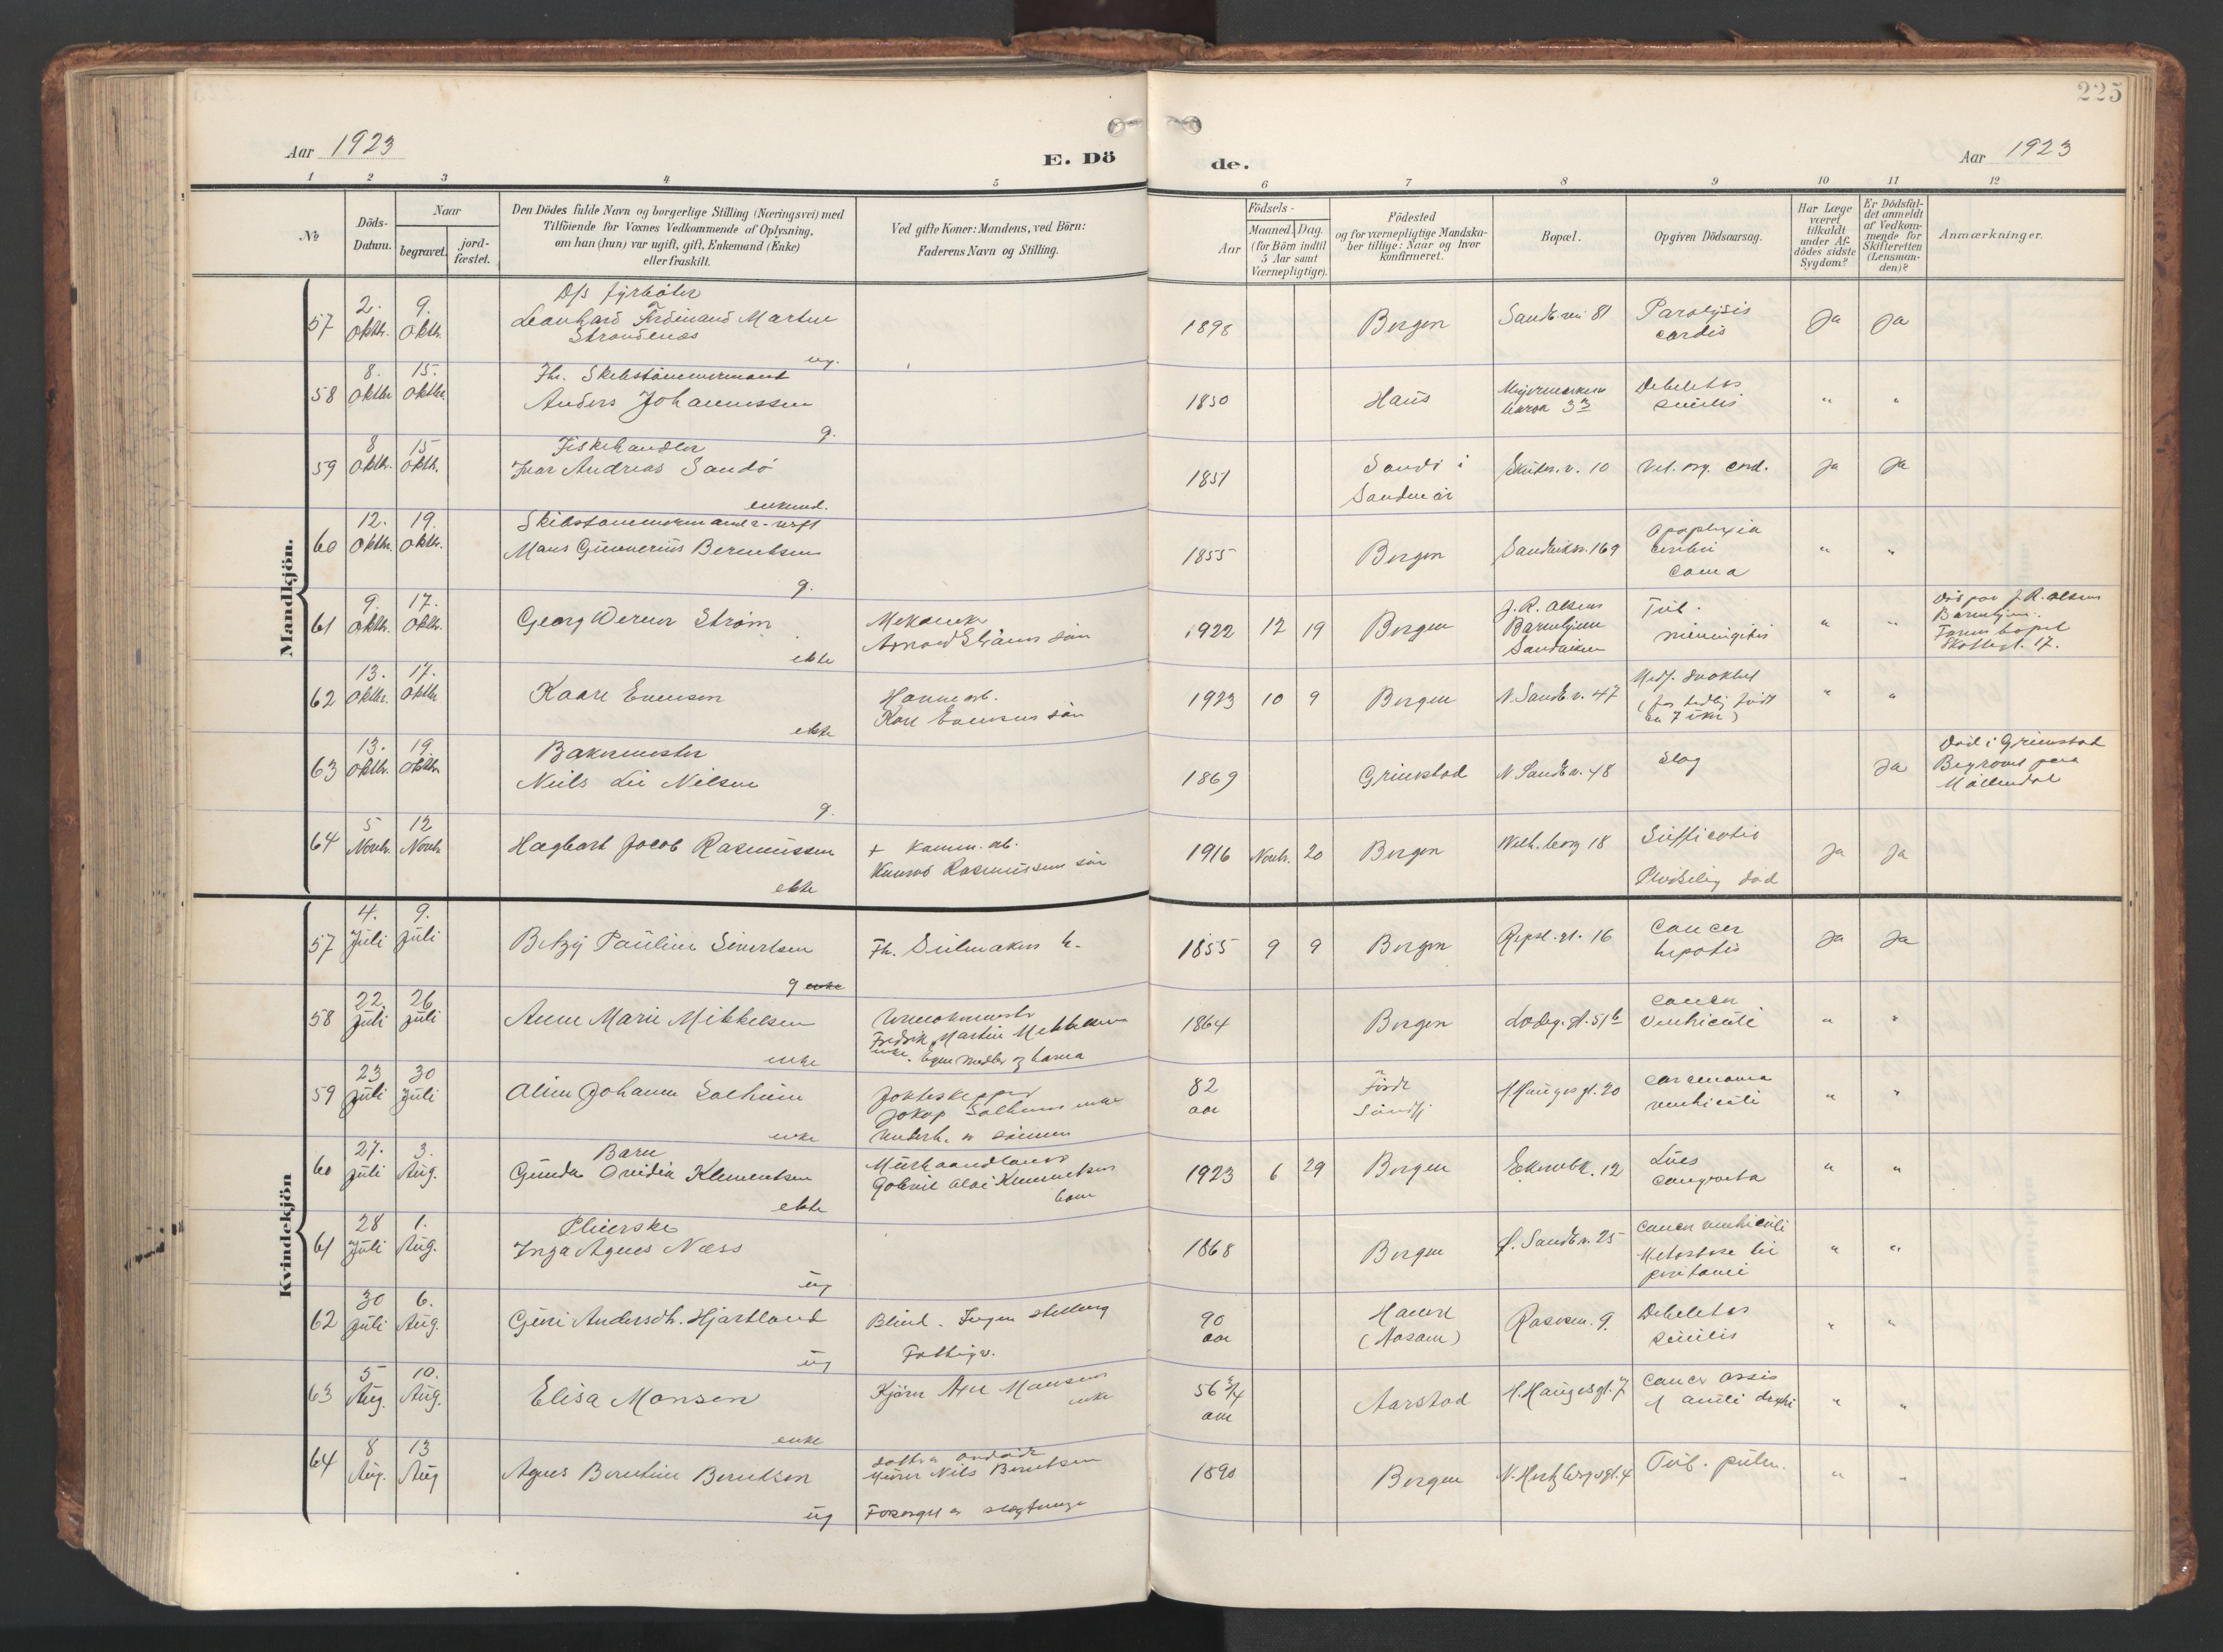 225
Aar 1923
E. Dö
de.
Aar 1923
1 2 3 4 5 6 7 8 9 10 11 12
№
Döds-
Datum.
Naar
begravet.
jord-
fæstet.
Den Dödes fulde Navn og borgerlige Stilling (Næringsvei) med
Tilföiende for Voxnes Vedkommende af Oplysning,
om han (hun) var ugift, gift, Enkemand (Enke)
eller fraskilt.
Ved gifte Koner: Mandens, ved Börn:
Faderens Navn og Stilling.
Födsels-
Aar
Maaned. Dag.
(for Börn indtil
5 Aar samt
Værnepligtige).
Födested
og for værnepligtige Mandska-
ber tillige: Naar og hvor
Konfirmeret.
Bopæl.
Opgiven Dödsaarsag.
Har Læge
været
tilkaldt
under Af-
dödes sidste
Sygdom?
Er Dödsfal-
det anmeldt
af Vedkom-
mende for
Skifteretten
(Lensman-
den)?
Anmærkninger.
Mandkjön.
57 2. Oktbr. 9. Oktbr.
D/s fyrböter
Leonhard Ferdinand Martin
Strandenæs
ug.
1898 Bergen Sandv.vei 81
Paralysis
cordis
Ja Ja
58 8. Oktbr 15. Oktbr
Fhr. Skibstömmermand
Anders Johannessen
g.
1850 Haus
Debelitas
senilis
" "
59 8 Oktbr. 15 Oktbr.
Fiskehandler
Ivar Andreas Sandö
enkemd.
1851
Sandö i
Söndmör
Skutev. v. 10
Vit. org. cord.
Ja Ja
60 12. Oktbr. 19. Oktbr.
Mons Gunnerius Berentsen
g.
1855 Bergen Sandviksv. 169
Apoplexia
cerebri
Coma
" "
61 9. Oktbr. 17. Oktbr.
Georg Werner Ström
ekte
Mekaniker
Arnold Ströms sön
1922 12 19 Bergen
J. R. Olsens
Barnehjem
Sandviken
Tub.
meningitis
" "
Död paa J. R. Olsens
Barnehjem.
17.
62 13. Oktbr. 17. Oktbr
Kaare Evensen
ekte
Havnearb.
Kare Evensens sön
1923 10 9 Bergen N. Sandv. v. 47
Medf. svakhet
" "
63 13. Oktbr. 19. Oktbr
Bakermester
Niels Lii Nilsen
g.
1869 Grimstad N. Sandv. v. 48
Slag
Ja
Död i Grimstad
Begravet paa
Möllendal
64 5 Novbr. 12 Novbr
Hagbart Jacob Rasmussen
ekte
+ Komm. arb.
Konrad Rasmussens sön
1916 Novbr. 20 Bergen 18
Suffocatio
Pludselig död
Ja Ja
Kvindekjön
57 4. Juli 9. Juli
Betzy Pauline Sivertsen
g enke
Fh. Seilmaker h.
1855 9 9 Bergen Repsl. gt. 16
Cancer
hepatis
Ja Ja
58 22. Juli 26 Juli
Anne Marie Mikkelsen
enke
Fredrik Martin Mikkelsens
enke.
1864 Bergen Lodeg. gt. 51b
Cancer
Ventriculi
" "
59 23 Juli 30 Juli
Aline Johanne Solheim
enke
Jakteskipper
Jakop Solheims enke
Underh. av sönnen
82
aar
Förde
Söndfj.
H. Haugesgt. 20
Carcinoma
ventriculi
" "
60 27. Juli 3. Aug.
Barn
Gunda Ovidia Klementsen
ekte
Murhaandlanger
barn
1923 6 29 Bergen 12
Lues
Congenita
" "
61 28 Juli 1. Aug.
Pleierske
Inga Agnes Næss
ug
1868 Bergen Ø. Sandv. v. 25
Cancer ventriculi
Metastase til
peritonei
" "
62 30 Juli 6. Aug.
Guri Andersdtr. Hjartland
ug
Blind. Ingen stilling
Fattigv.
90
aar
Hamre
9.
Debelitas
senilis
" "
63 5 Aug. 10. Aug.
Elisa Monsen
enke
Monsens
enke
56 3/4
aar
Aarstad H. Haugesgt. 7
Cancer ossis
" "
64 8 Aug. 13 Aug
Agnes Berntine Berntsen
ug
Murer Nils Berntsen
1890 Bergen N. Hertzbergsgt. 4
Tub. pulm.
" "